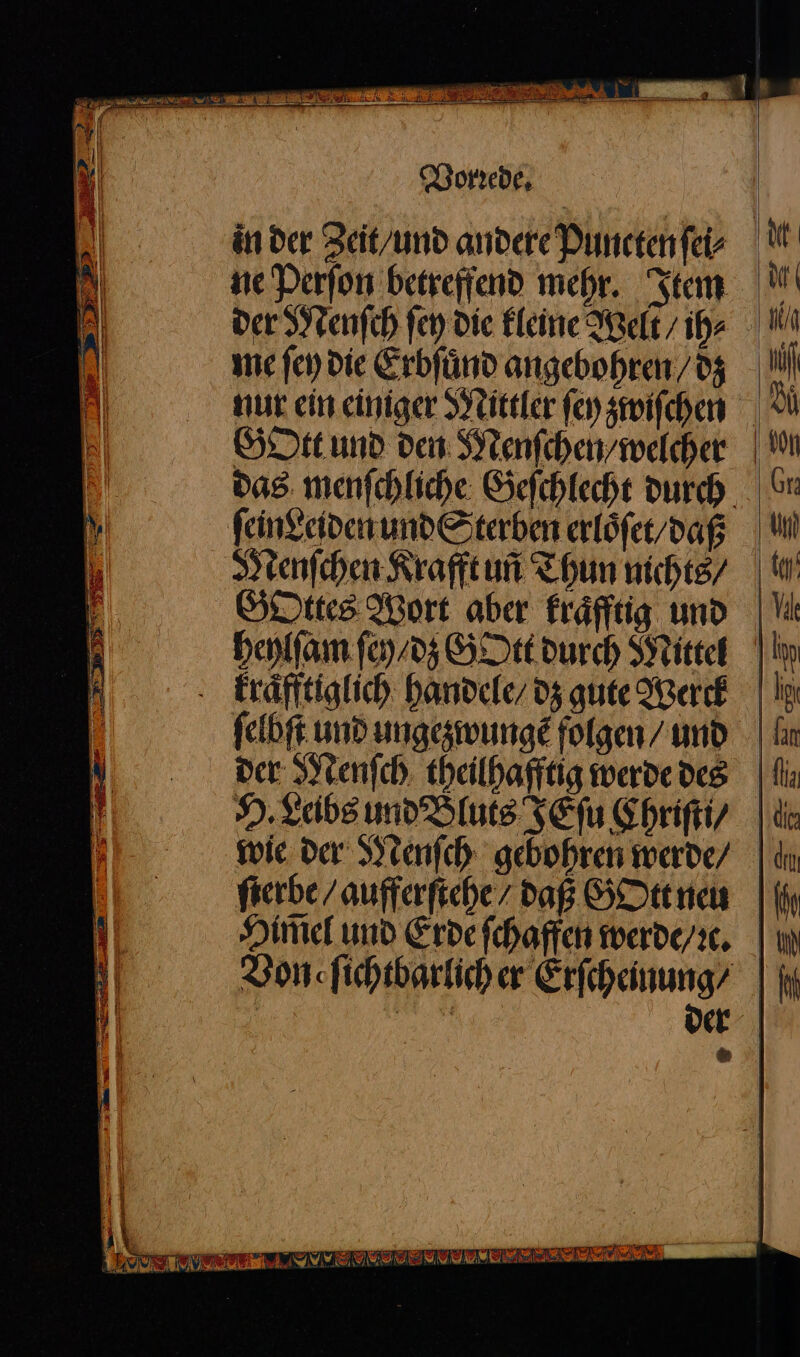 Vorꝛede.
in der Zeit/und andere Puncten ſei⸗
ne Perſon betreffend mehr. Item
der Menſch ſey die kleine Welt / ih⸗
me ſey die Erbſuͤnd angebohren / dz
nur ein einiger Mittler ſey zwiſchen
GOtt und den Menſchen/welcher
das menſchliche Geſchlecht durch
ſein Leiden und Sterben erloͤſet/daß
Menſchen Krafft uñ Thun nichts/
GOttes Wort aber kraͤfftig und
heylſam ſey/dz GOtt durch Mittel
kraͤfftiglich handele/ dz gute Werck
ſelbſt und ungezwungẽ folgen / und
der Menſch theilhafftig werde des
H. Leibs und Bluts JEſu Chriſti/
wie der Menſch gebohren werde/
ſterbe / aufferſtehe / daß GOtt neu
Him̃el und Erde ſchaffen werde/ꝛc.
Von ſichtbarlicher Erſcheinung/
der